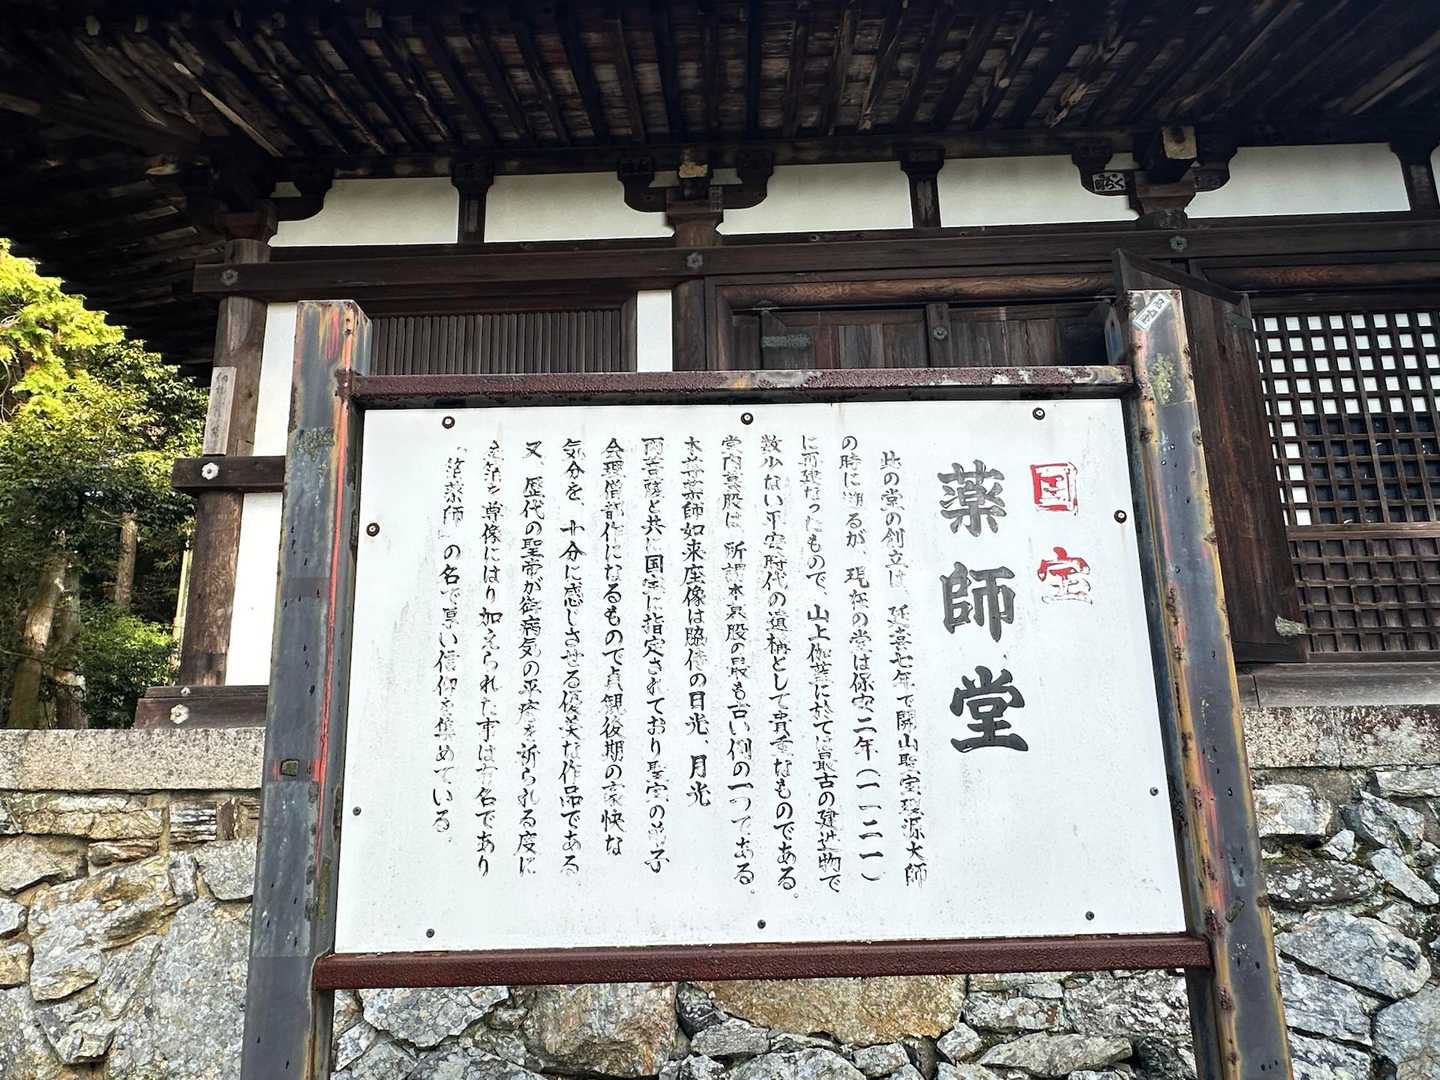 国宝
薬師堂
此の堂の創立は、延喜七年で開山聖宝理源大師
の時に溯るが、現在の堂は保安二年(一一二一)
に再建なったもので、山上伽藍に於ては最古の建造物で
数少ない平安時代の遺構として貴重なものである。
堂内蟇股は、所謂本蟇股の最も古い例の一つである。
本尊薬師如来座像は脇侍の日光、月光
両菩薩と共に国宝に指定されており聖宝の弟子
会理僧都作になるもので貞観後期の豪快な
気分を、十分に感じさせる優美な作品である
又、歴代の聖帝が御病気の平癒を祈られる度に
を尊像にはり加えられた事は有名であり
薬師」の名で厚い信仰を集めている。